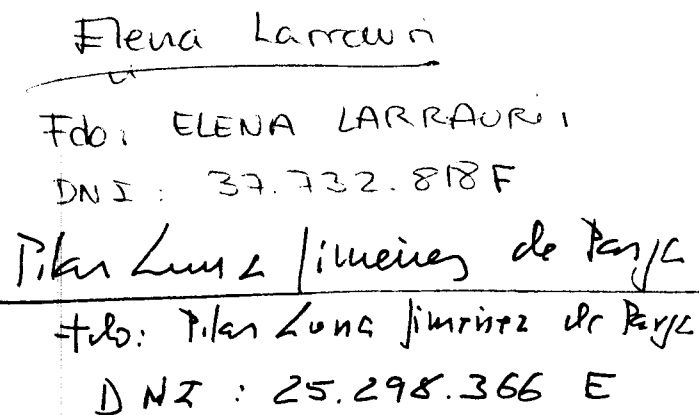 Elena Larrauri
Fdo: ELENA LARRAURI
DNI: 37.732.818F
Pilar Luna Jimenez de Parga
Fdo: Pilar Luna Jiménez de Parga
DNI: 25.298.366 E